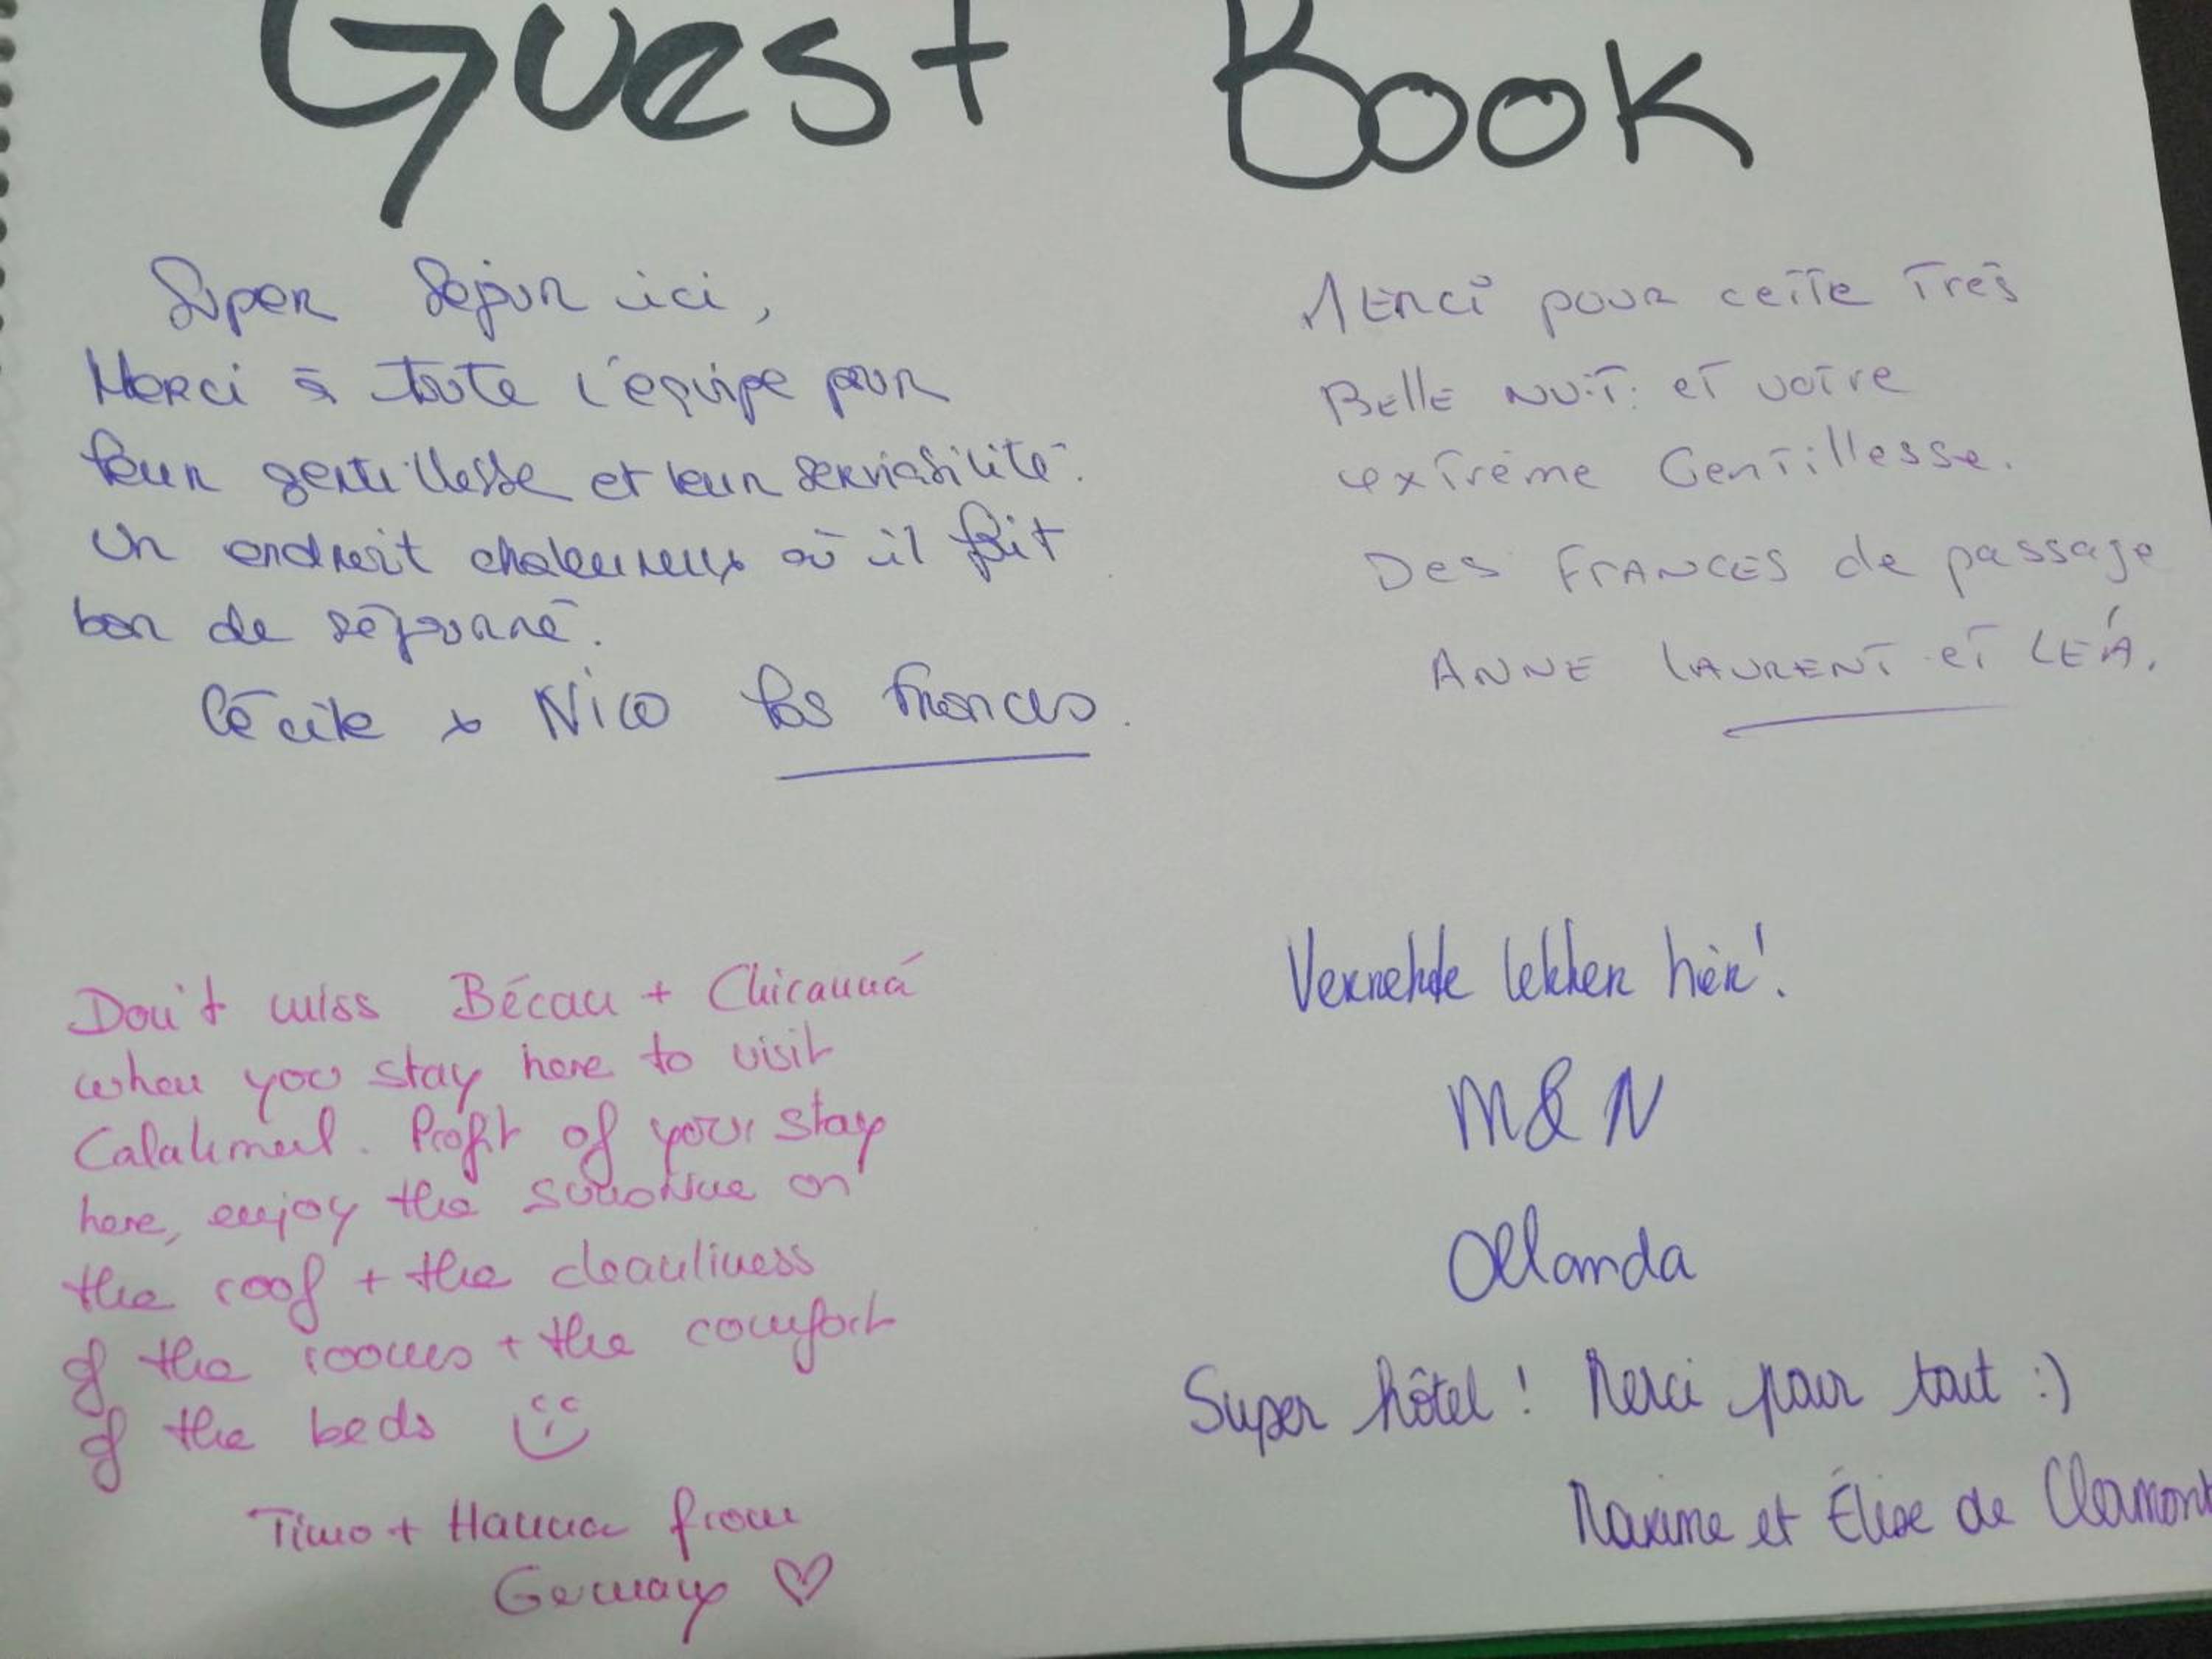 Guest Book
Super Séjour ici,
Merci à toute l'équipe pour
leur gentillesse et leur serviabilité.
Un endroit chaleureux où il fait
bon de séjourné.
Cécile & Nico los frances.
Merci pour cette Très
Belle nuit et votre
extrême Gentillesse.
Des FRANCES de passage
ANNE LAURENT et LÉA.
Don't miss Bécan + Chicanná
when you stay here to visit
Calakmul. Profit of your stay
here, enjoy the sunshine on
the roof + the cleanliness
of the rooms + the comfort
of the beds
Timo + Hanna from
Germany ♡
lekker hier!
M & N
Ollanda
Super hôtel ! Merci pour tout :)
Maxime et Élise de Clermont